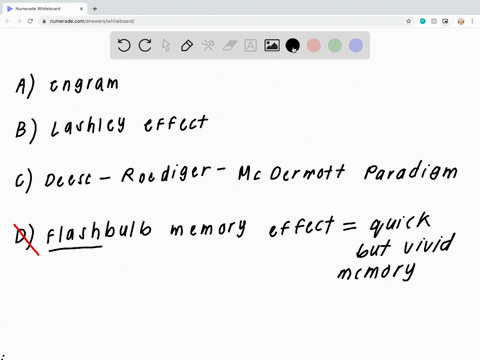 Numerade Whiteboard
numerade.com/answers/whiteboard/
A) engram
B) Lashley effect
C) Deese - Roediger - McDermott Paradigm
D) flashbulb memory effect = quick
but vivid
memory